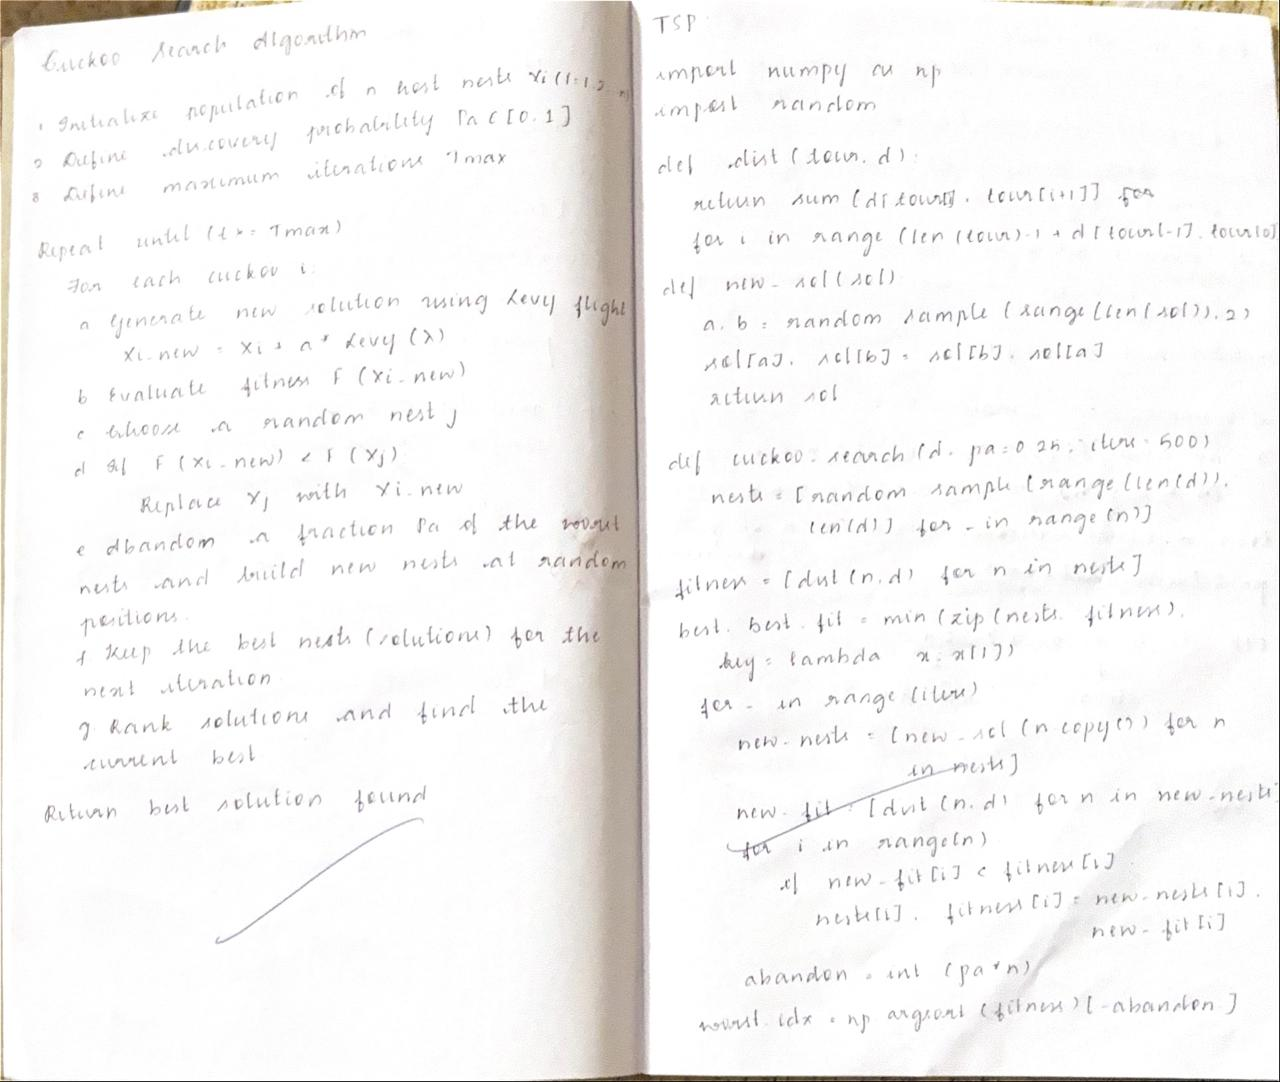 Cuckoo Search Algorithm
1 Initialize population of n host nests xi (i=1,2..n)
2 Define discovery probability Pa ∈ [0,1]
3 Define maximum iterations Tmax
Repeat until (t >= Tmax)
For each cuckoo i:
a Generate new solution using Levy flight
xi-new = xi + a * Levy (λ)
b Evaluate fitness F (xi-new)
c Choose a random nest j
d If F (xi-new) < F (xj)
Replace xj with xi-new
e Abandon a fraction Pa of the worst
nests and build new nests at random
positions.
f Keep the best nests (solutions) for the
next iteration
g Rank solutions and find the
current best
Return best solution found
TSP:
import numpy as np
import random
def dist (tour, d):
return sum (d[tour[i], tour[i+1]] for
for i in range (len (tour)-1 + d [tour[-1], tour[0]
def new_sol (sol)
a, b = random sample (range (len (sol)), 2)
sol[a], sol[b] = sol[b], sol[a]
return sol
def cuckoo_search (d, pa=0.25, iter=500)
nests = [random sample (range (len(d)),
len(d)] for _ in range (n)]
fitness = [dist (n,d) for n in nests]
best, best_fit = min (zip (nests, fitness),
key = lambda x: x[1])
for _ in range (iter)
new_nests = [new_sol (n copy()) for n
in nests]
new_fit = [dist (n,d) for n in new_nests
for i in range(n)
if new_fit[i] < fitness[i]
nests[i], fitness[i] = new_nests[i],
new_fit[i]
abandon = int (pa*n)
worst_idx = np argsort (fitness) [-abandon:]